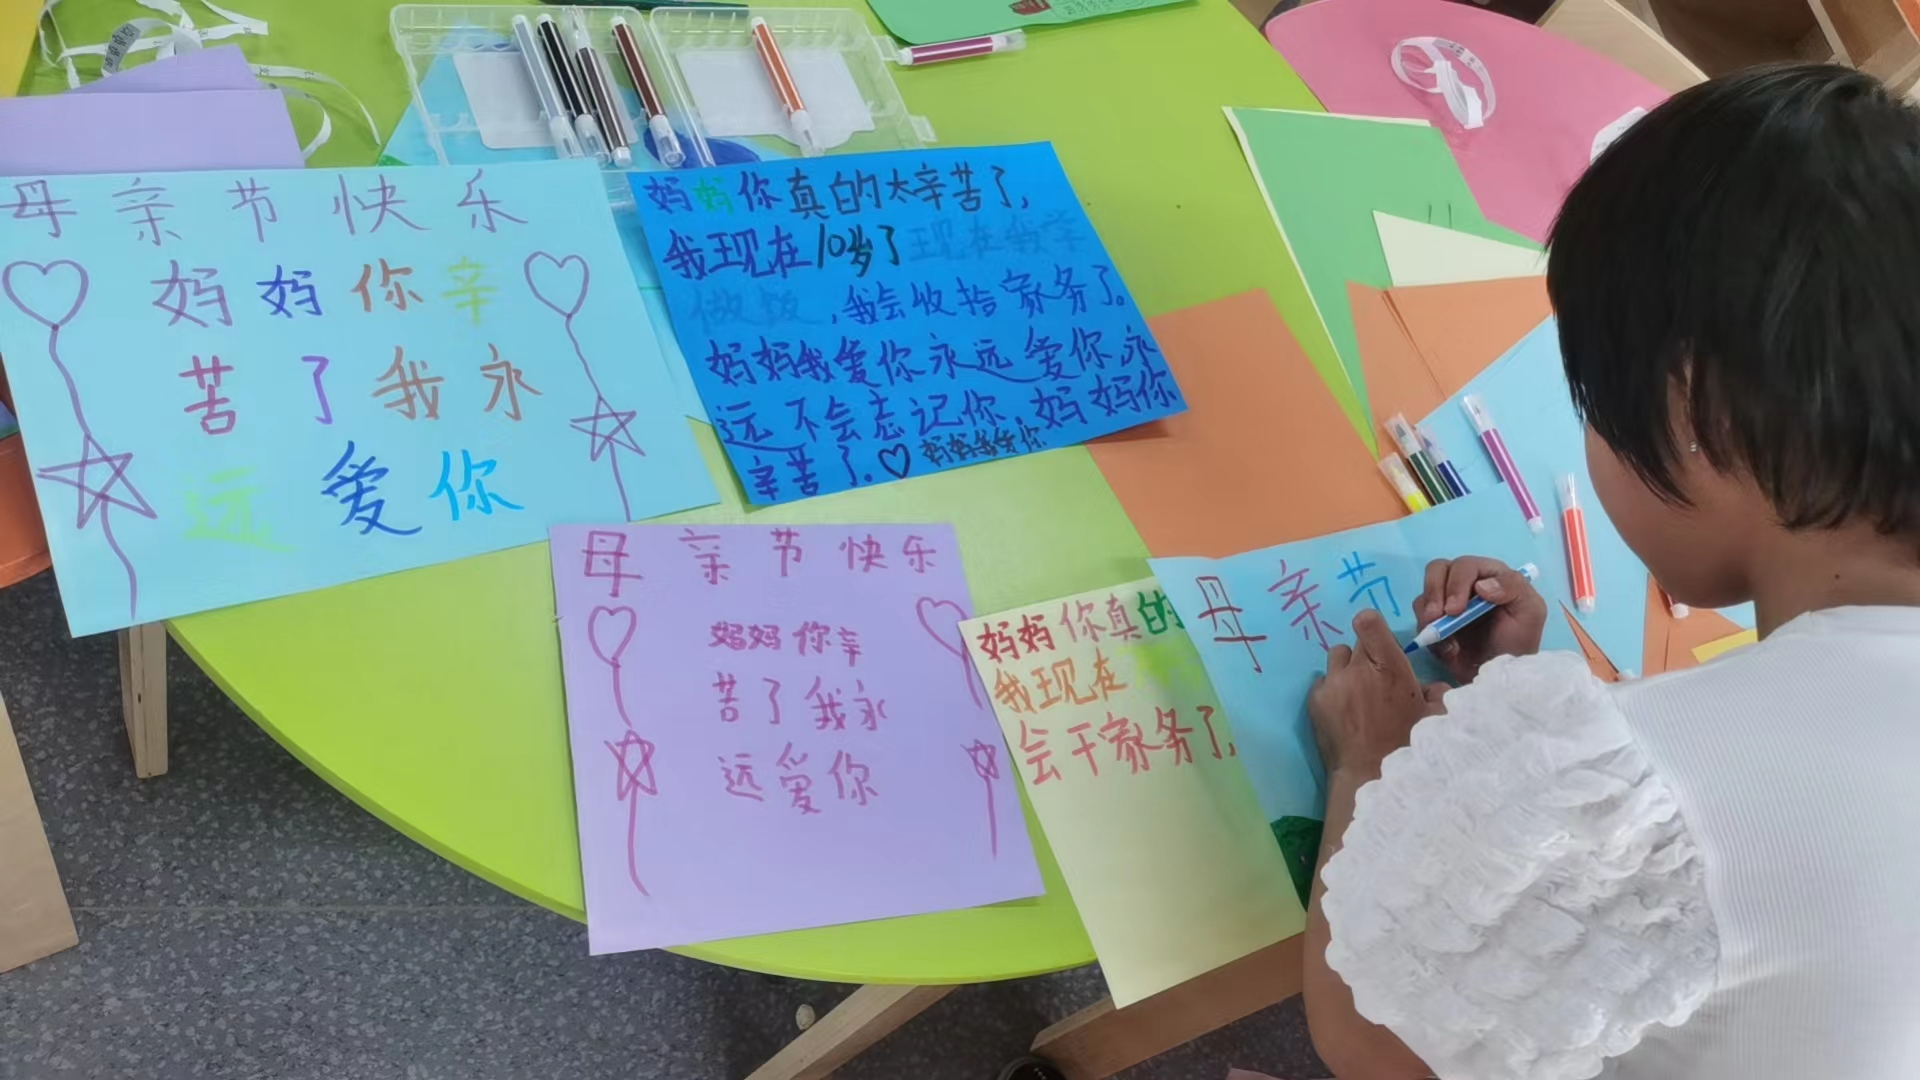 母亲节快乐
妈妈你辛
苦了我永
远爱你
妈妈你真的太辛苦了,
我现在10岁了现在我学
做饭,我会收拾家务了。
妈妈我爱你永远爱你,永
远不会忘记你,妈妈你
辛苦了。♡妈妈我爱你
母亲节快乐
妈妈你辛
苦了我永
远爱你
妈妈你真的
我现在
会干家务了,
母亲节